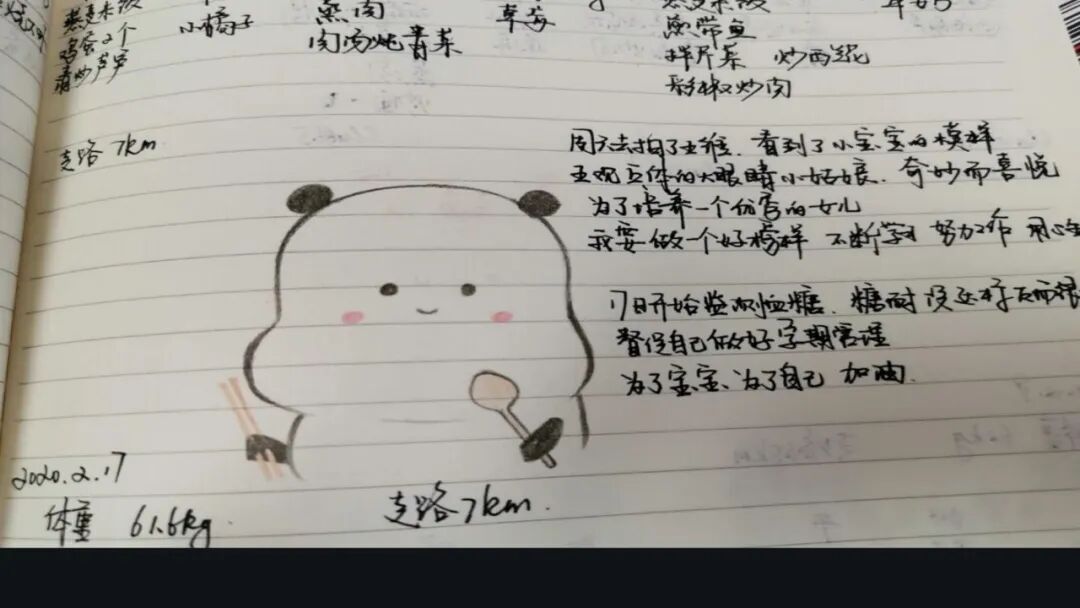 燕麦米饭
鸡蛋2个
清炒芦笋
小橘子
蒸肉
肉肉炖青菜
草莓
燕麦米饭
煎带鱼
拌芹菜 炒西葫
彩椒炒肉
走路7km
周六去拍了四维，看到了小宝宝的模样
五观立体的大眼睛小姑娘，奇妙而喜悦
为了培养一个优秀的女儿
我要做一个好榜样 不断学习 努力工作 用心
17日开始监测血糖，糖耐没过
督促自己做好孕期管理
为了宝宝，为了自己 加油
2020.2.17
体重 61.6kg
走路7km